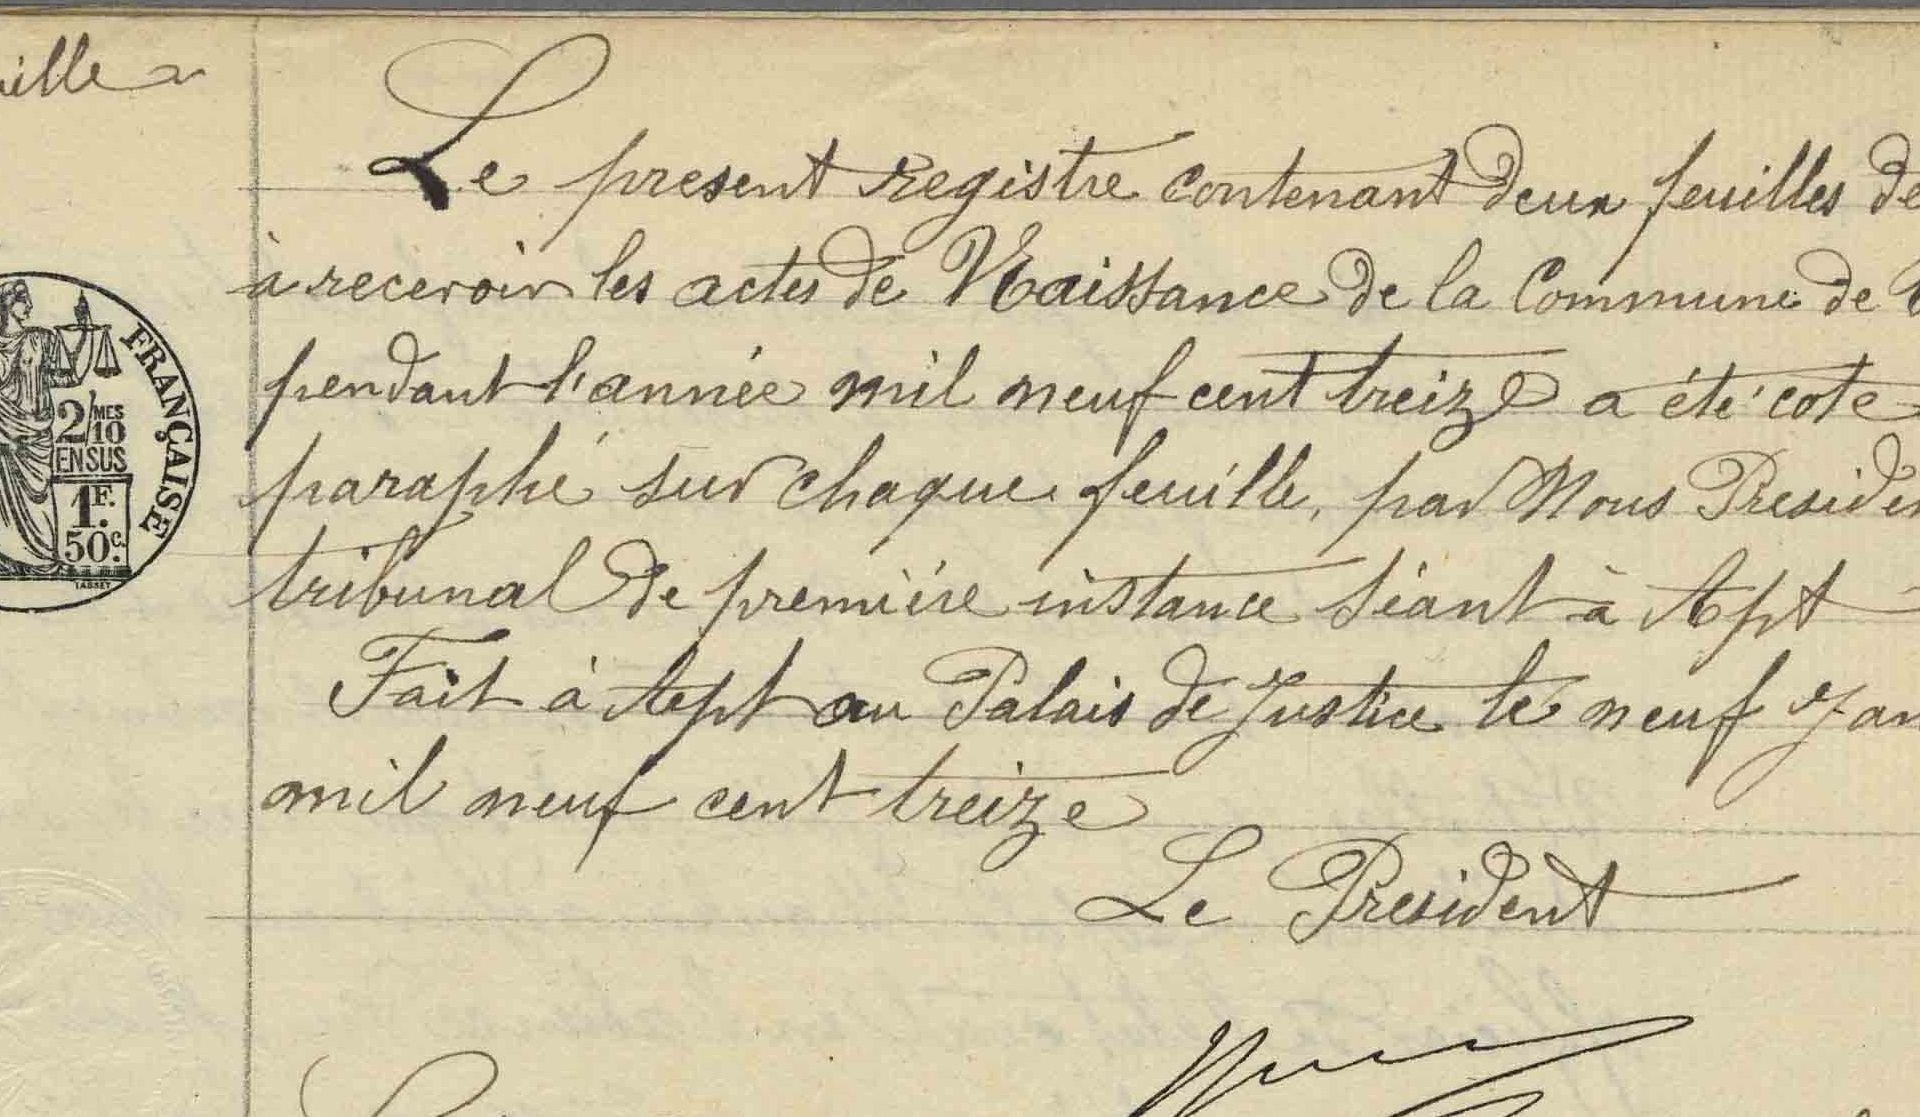 ille
Le present registre contenant deux feuilles de
à recevoir les actes de Naissance de la Commune de
pendant l'année mil neuf cent treize a été coté
paraphé sur chaque feuille, par Nous Presiden
tribunal de première instance séant à Apt
Fait à Apt au Palais de Justice le neuf Jan
mil neuf cent treize
Le President
FRANÇAISE
2/10 MES
EN SUS
1F.
50c.
TASSET